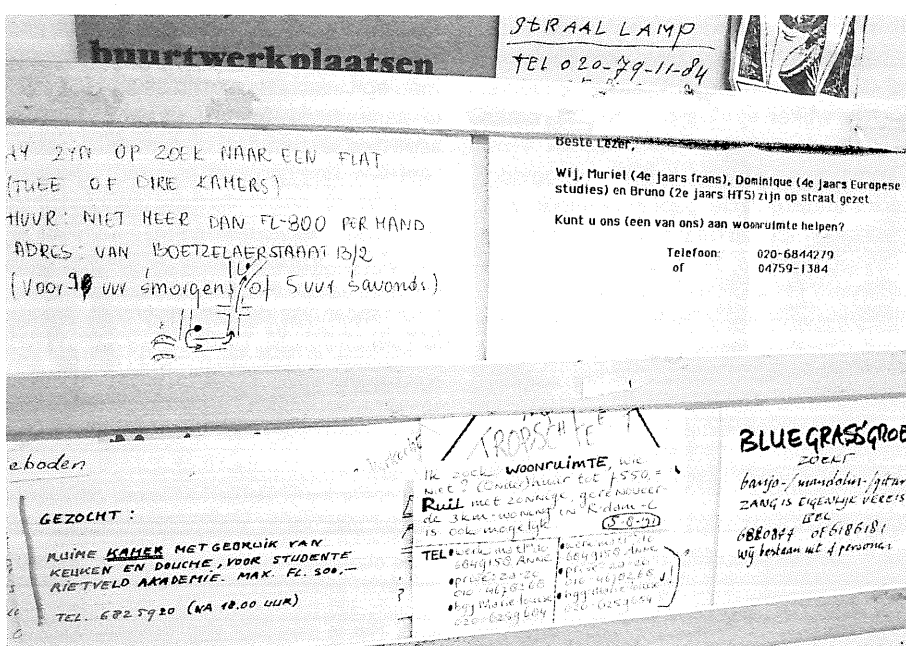 buurtwerkplaatsen
STRAAL LAMP
TEL 020-79-11-84
ZYN OP ZOEK NAAR EEN FLAT
(TWEE OF DIRE KAMERS)
HUUR: NIET MEER DAN FL-800 PER MAND
ADRES: VAN BOETZELAERSTRAAAT 13/2
(Voor 9 uur smorgens of 5 uur savonds)
Beste Lezer,
Wij, Muriel (4e jaars frans), Dominique (4e jaars Europese
studies) en Bruno (2e jaars HTS) zijn op straat gezet.
Kunt u ons (een van ons) aan woonruimte helpen?
Telefoon: 020-6844279
of 04759-1384
eboden
GEZOCHT :
RUIME KAMER MET GEBRUIK VAN
KEUKEN EN DOUCHE, VOOR STUDENTE
RIETVELD AKADEMIE. MAX. FL. 500,-
TEL. 6825920 (NA 18.00 UUR)
Ik zoek woonruimte, wie
niet? (Onder)huur tot ƒ550,=
Ruil met zonnige, gerenoveer-
de 3km-woning in R-dam-C
is ook mogelijk
TEL
6849158 Anne
010-4670268
020-6259684
BLUEGRASSGROE
ZOEKT
banjo-/mandolin-/gitar
ZANG IS EIGENLIJK VEREIS
BEL
of 6186181
wij bestaan uit 4 personen